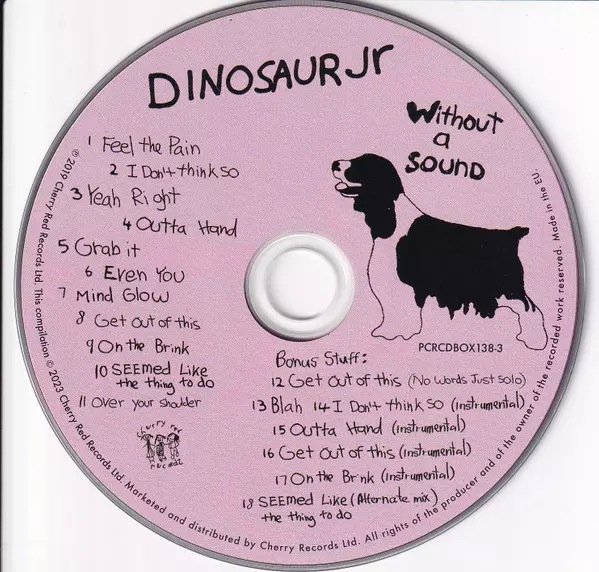 DINOSAUR Jr
Without
a
SOUND
1 Feel the Pain
2 I Don't think so
3 Yeah Right
4 Outta Hand
5 Grab it
6 Even You
7 Mind Glow
8 Get out of this
9 On the Brink
10 SEEMED Like
the thing to do
11 Over your shoulder
cherry red
records
PCRCDBOX138-3
Bonus Stuff:
12 Get out of this (No Words Just Solo)
13 Blah 14 I Don't think so (instrumental)
15 Outta Hand (instrumental)
16 Get out of this (instrumental)
17 On the Brink (instrumental)
18 SEEMED Like (Alternate mix)
the thing to do
℗ 2019 Cherry Red Records Ltd. This compilation ℗ 2023 Cherry Red Records Ltd. Marketed and distributed by Cherry Records Ltd. All rights of the producer and of the owner of the recorded work reserved. Made in the EU.